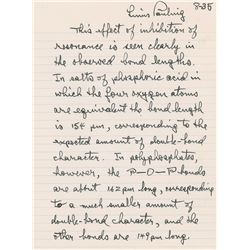 Linus Pauling
8-35
This effect of inhibition of
resonance is seen clearly in
the observed bond lengths.
In salts of phosphoric acid in
which the four oxygen atoms
are equivalent the bond length
is 154 pm, corresponding to the
expected amount of double-bond
character. In polyphosphates,
however, the P-O-P bonds
are about 162 pm long, corresponding
to a much smaller amount of
double-bond character, and the
other bonds are 149 pm long.